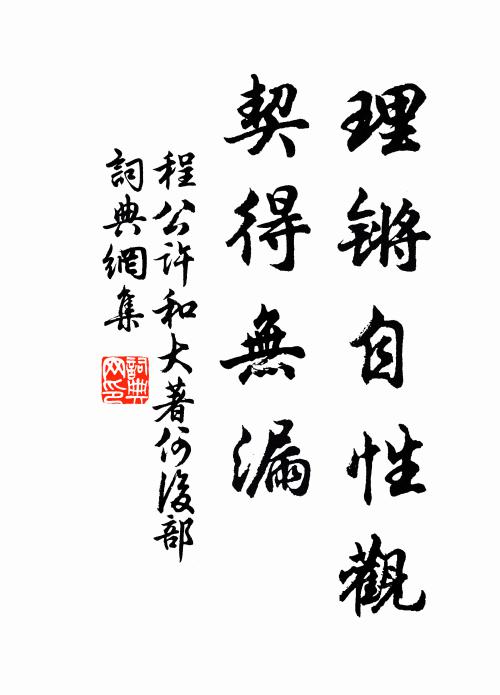 理锵自性觀
契得無漏
程公許和大著何後部
詞典網集
詞典網印